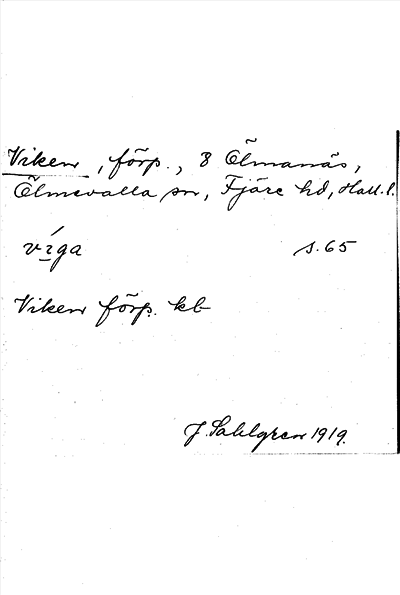 Viken, förp., 8 Ölmanäs,
Ölmevalla sn, Fjäre hd, Hall. l.
víga s. 65
Viken förp. kb
J. Sahlgren 1919.